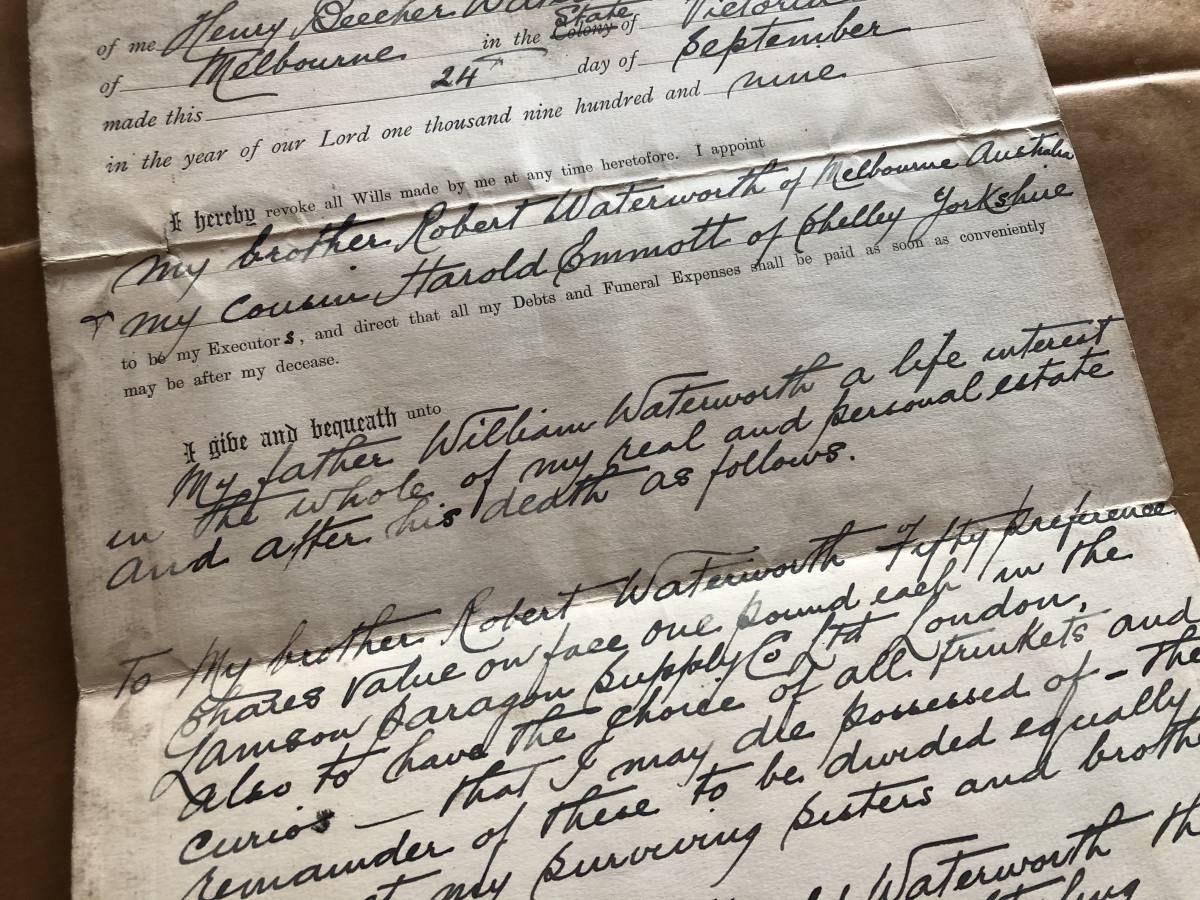 of me Henry Beecher
of Melbourne in the State Colony of Victoria
made this 24th day of September
in the year of our Lord one thousand nine hundred and nine
I hereby revoke all Wills made by me at any time heretofore. I appoint
my brother Robert Waterworth of Melbourne Australia
+ my cousin Harold Emmott of Shelley Yorkshire
to be my Executors, and direct that all my Debts and Funeral Expenses shall be paid as soon as conveniently
may be after my decease.
I give and bequeath unto
My father William Waterworth a life interest
in the whole of my real and personal estate
and after his death as follows.
To My brother Robert Waterworth Fifty preference
shares value on face one pound each in the
Lamson Paragon Supply Co Ltd London,
also to have the choice of all trinkets and
curios — that I may die possessed of — The
remainder of these to be divided equally
my surviving sisters and
Waterworth